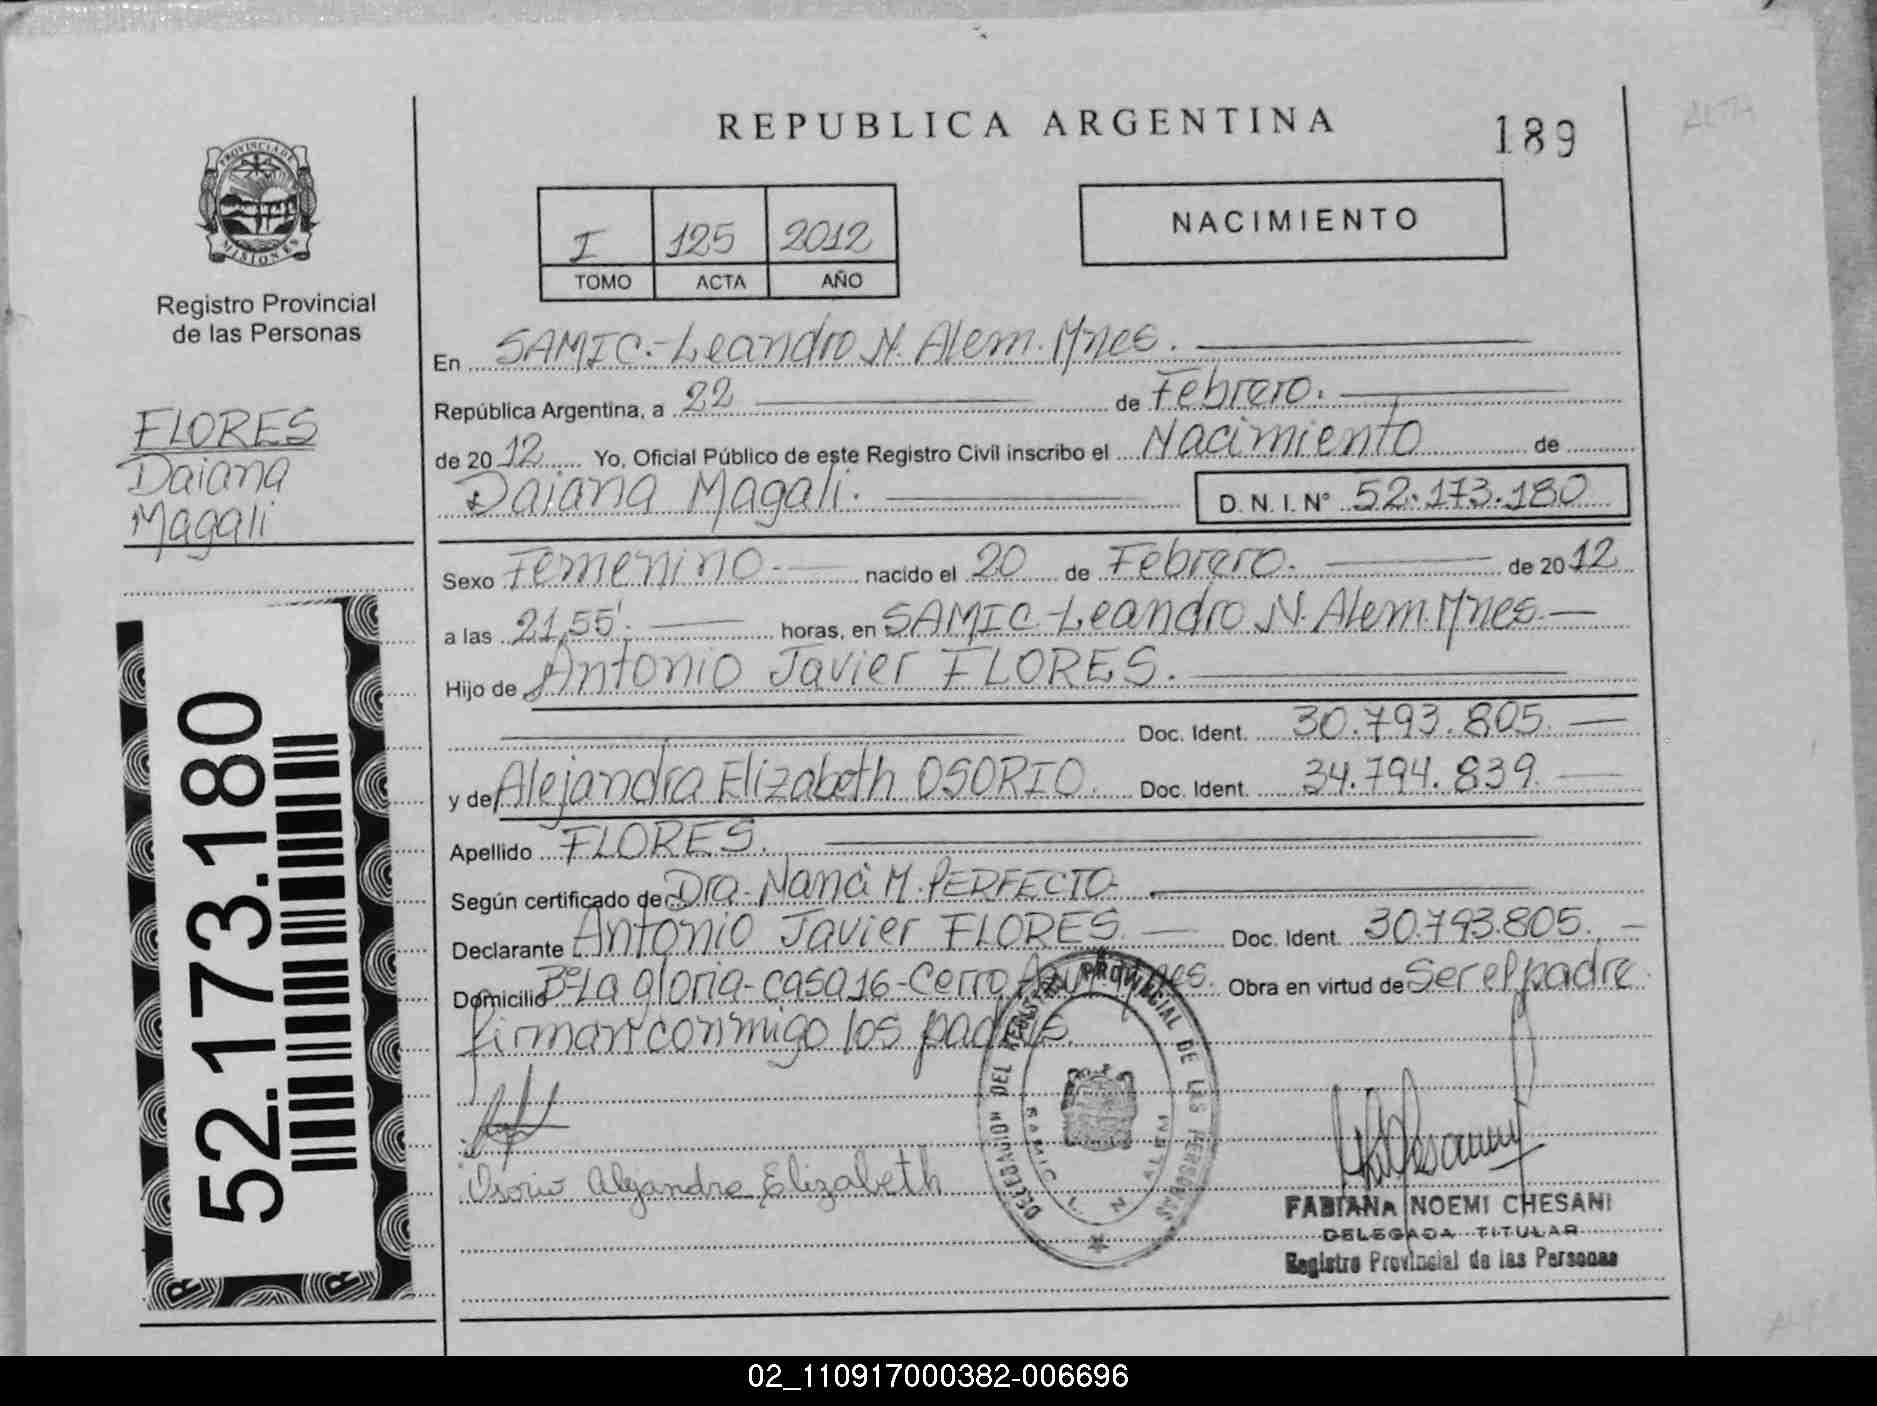 REPUBLICA ARGENTINA
189
PROVINCIA DE MISIONES
Registro Provincial
de las Personas
I 125 2012
TOMO ACTA AÑO
NACIMIENTO
FLORES
Daiana
Magali
52.173.180
En SAMIC.-Leandro N. Alem. Mnes.
República Argentina, a 22 de Febrero.
de 2012 Yo, Oficial Público de este Registro Civil inscribo el Nacimiento de
Daiana Magali. D.N.I. Nº 52.173.180
Sexo Femenino.- nacido el 20 de Febrero. de 2012
a las 21,55'. horas, en SAMIC-Leandro N. Alem. Mnes.-
Hijo de Antonio Javier FLORES.
Doc. Ident. 30.793.805.
y de Alejandra Elizabeth OSORIO. Doc. Ident. 34.794.839.
Apellido FLORES.
Según certificado de Dra. Nanci M. PERFECTO.
Declarante Antonio Javier FLORES. Doc. Ident. 30.793.805.
Domicilio Bº La gloria-casa 16-Cerro Azul Mnes. Obra en virtud de Ser el padre.
firman conmigo los padres.
DELEGACION DEL REGISTRO PROVINCIAL DE LAS PERSONAS
SAMIC L. N. ALEM
Osorio Alejandra Elizabeth
FABIANA NOEMI CHESANI
DELEGADA TITULAR
Registro Provincial de las Personas
02_110917000382-006696